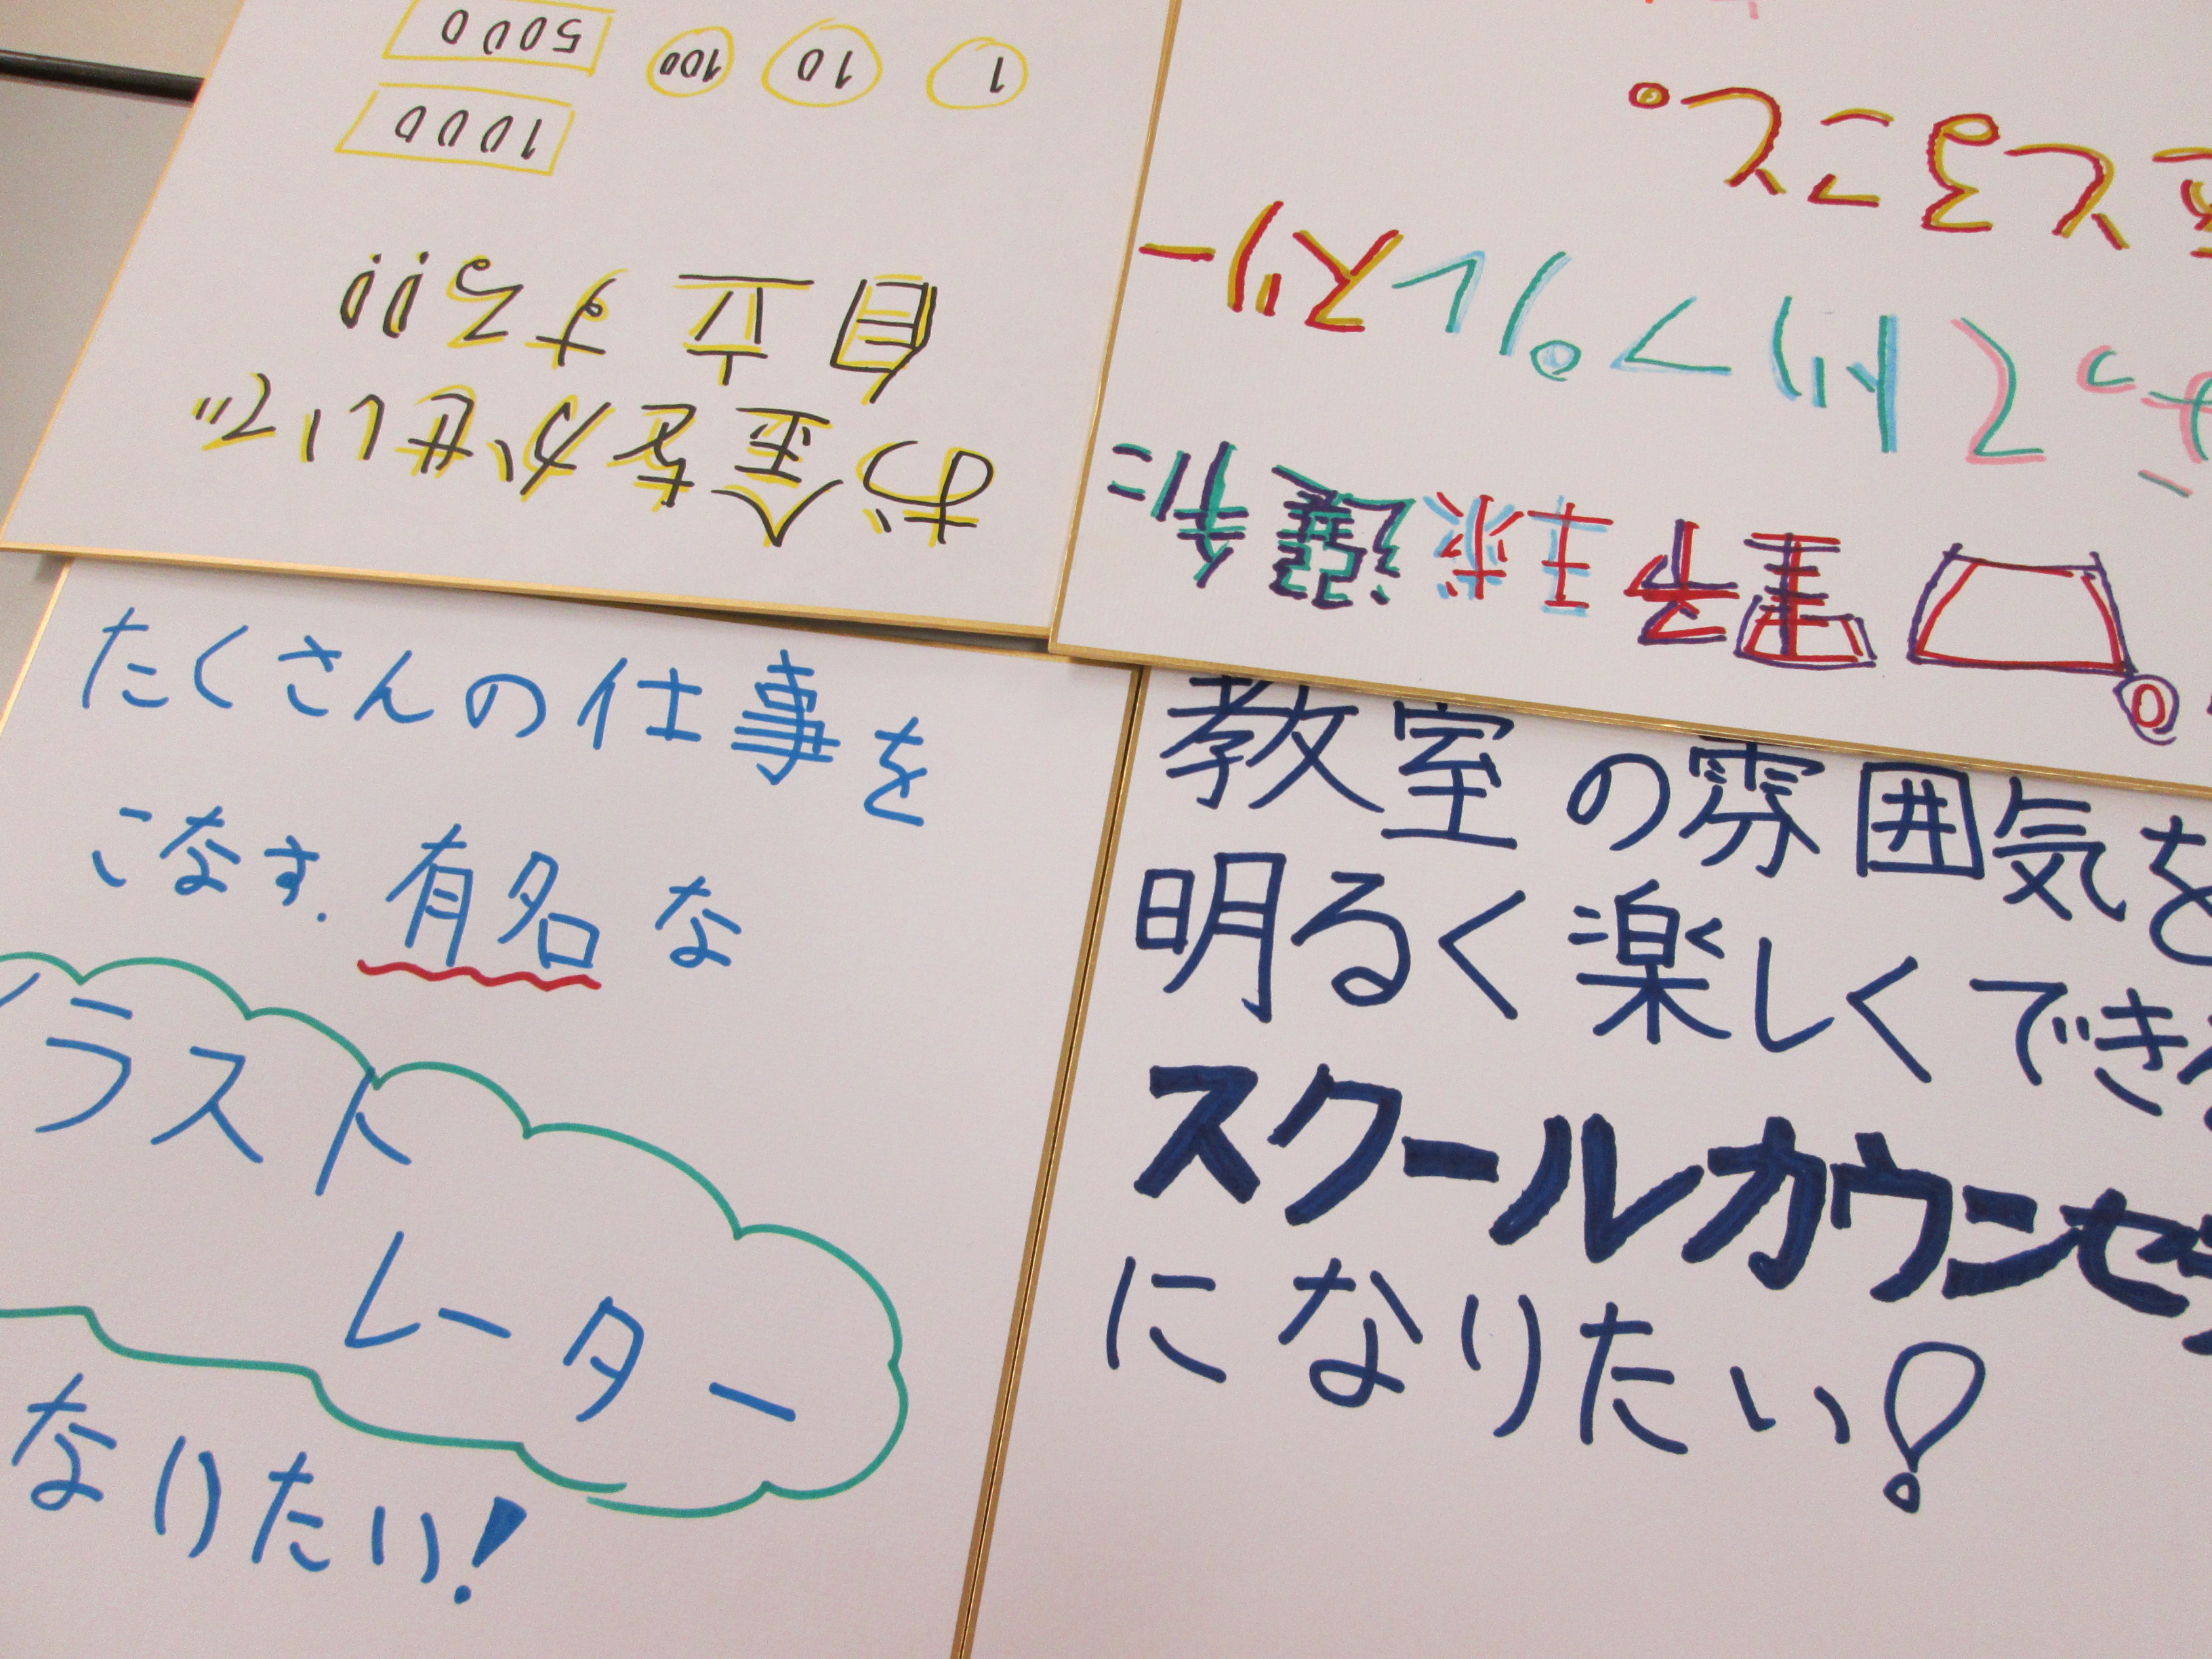 お金をかせいで
自立する!!
1000
1 10 100 5000
ロ野球選手に
とること。
たくさんの仕事を
こなす.有名な
イラスト
レーター
なりたい!
教室の雰囲気を
明るく楽しくでき
スクールカウンセ
になりたい!